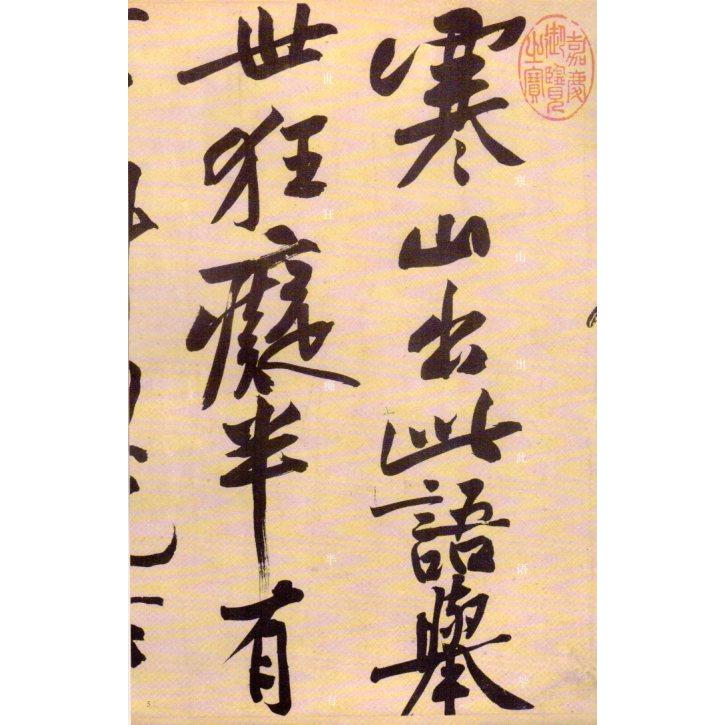 嘉慶御覽之寶
寒山出此語舉
寒山出此语举
世狂癡半有
世狂痴半有
5